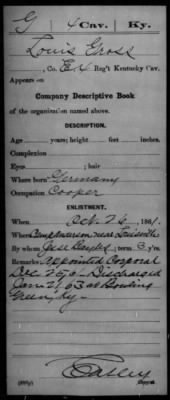 G 4 Cav. Ky.
Louis Gross
, Co. E, 4 Reg't Kentucky Cav.
Appears on
Company Descriptive Book
of the organization named above.
DESCRIPTION.
Age years; height feet inches.
Complexion
Eyes ; hair
Where born Germany
Occupation Cooper
ENLISTMENT.
When Oct. 26, 1861.
Where Camp near Louisville
By whom Jesse ; term 3 y'rs.
Remarks: Appointed Corporal
Dec 25, 61 Discharged
Jan. 21 63 at Bowling
Green, Ky
Copyist.